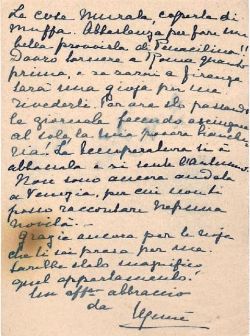 Le cose murali, coperte di
muffa. Abbastanza per fare una
bella provvista di Penicillina!!
Dovrò tornare a Roma quando
prima, e se sarai a Firenze
sarà una gioja per me
rivederti. Per ora sto passando
le giornate facendo asciugare
al sole la mia povera bianche
ria! La temperatura si è
abbassata e si sente l'autunno.
Non sono ancora andata
a Venezia, per cui non ti
posso raccontare nessuna
novità.
Grazie ancora per la noja
che ti sei presa per me.
Sarebbe stato magnifico
quel appartamento!
Un aff.mo abbraccio
da